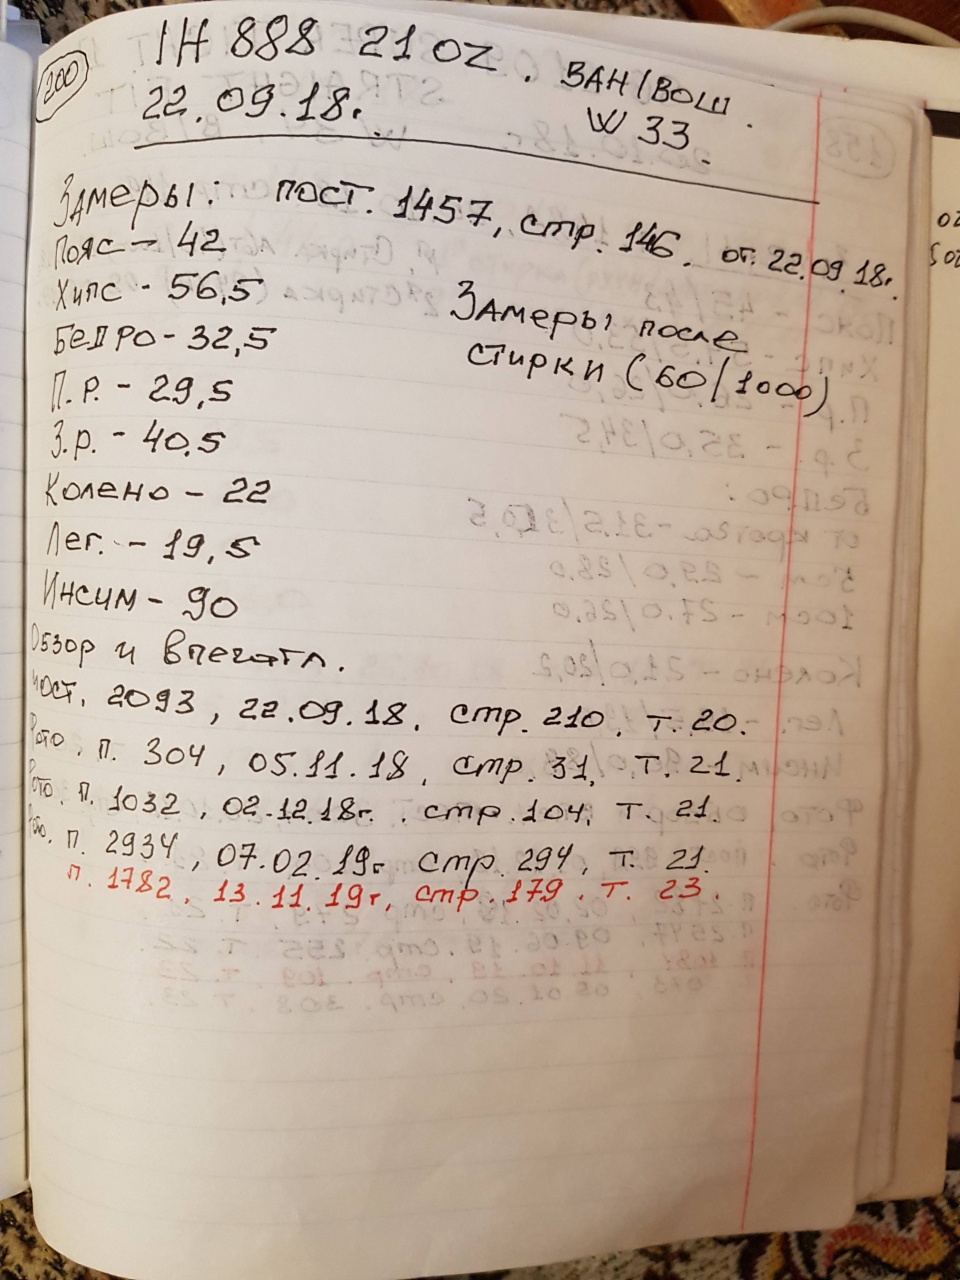 200
IH 888 21 OZ. ЗАН/ВОШ.
22.09.18г. W 33.
Замеры: пост. 1457, стр. 146. от. 22.09.18г.
Пояс - 42
Хипс - 56,5
Замеры после
Бедро - 32,5
стирки (60/1000)
П.р. - 29,5
З.р. - 40,5
Колено - 22
Лег. - 19,5
Инсим - 90
Обзор и впечатл.
пост. 2093, 22.09.18. стр. 210, т. 20.
Фото. п. 304, 05.11.18, стр. 31, т. 21.
Фото. п. 1032, 02.12.18г. стр. 104, т. 21.
Фото. п. 2934, 07.02.19г. стр. 294, т. 21.
п. 1782, 13.11.19г, стр. 179. т. 23.